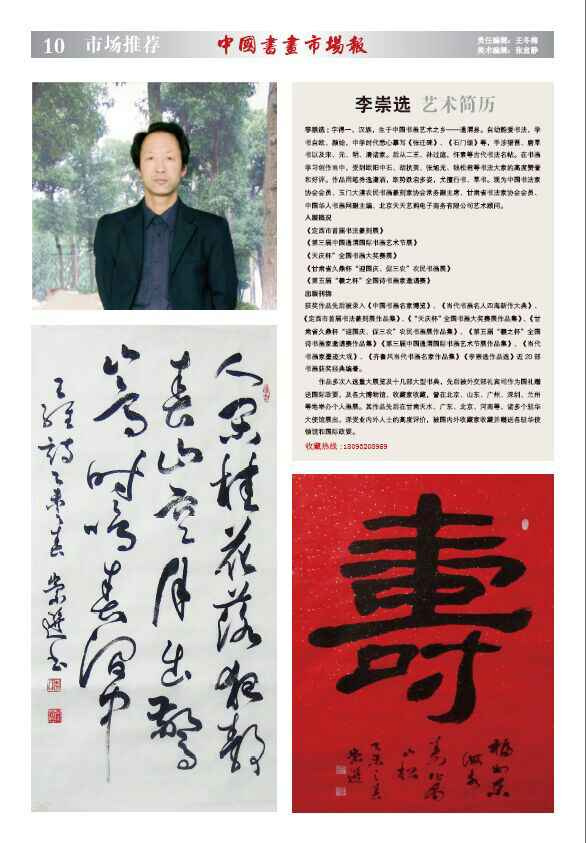 10 市场推荐
中國書畫市場報
责任编辑：王冬梅
李崇选 艺术简历
李崇选：字得一，汉族，生于中国书画艺术之乡——通渭县。自幼酷爱书法，学
书自欧、颜始，中学时代悉心摹写《张迁碑》、《石门颂》等，手涉猎晋、唐草
书以及宋、元、明、清诸家。后从二王、孙过庭、怀素等古代书法名帖。在书画
学习创作当中，受到欧阳中石、胡抗美、张旭光、钱松君等书法大家的高度赞誉
和好评。作品用笔俊逸潇洒，取势跌宕多姿，尤擅行书、草书。现为中国书法家
协会会员、玉门大漠农民书画篆刻家协会常务副主席、甘肃省书法家协会会员、
中国华人书画网副主编、北京天天艺购电子商务有限公司艺术顾问。
入展概况
《定西市首届书法篆刻展》
《第三届中国通渭国际书画艺术节展》
《天庆杯”全国书画大奖赛展》
《甘肃省久鼎杯“迎国庆、促三农”农民书画展》
《第五届“羲之杯”全国诗书画家邀请赛》
出版刊物
获奖作品先后被录入《中国书画名家博览》、《当代书画名人四海新作大典》、
《定西市首届书法篆刻展作品集》、《“天庆杯”全国书画大奖赛展作品集》、《甘
肃省久鼎杯“迎国庆、促三农”农民书画展作品集》、《第五届“羲之杯”全国
诗书画家邀请赛作品集》《第三届中国通渭国际书画艺术节展作品集》、《当代
书画家墨迹大观》、《齐鲁风当代书画名家作品集》《李崇选作品选》近 20 部
书画获奖经典编著。
作品多次入选重大展览及十几部大型书典，先后被外交部礼宾司作为国礼赠
送国际政要，及各大博物馆，收藏家收藏，曾在北京、山东、广州、深圳、兰州
等地举办个人画展。其作品先后在甘肃天水、广东、北京、河南等、诸多个驻华
大使馆展出。深受业内外人士的高度评价，被国内外收藏家收藏并赠送各驻华使
领馆和国际政要。
收藏热线：18093208969
人閒桂花落夜静
春山空月出驚
山鸟时鸣春涧中
王维诗乙未之春 崇選书
壽
福如東
海水
寿比南
山松
乙未之春
崇選